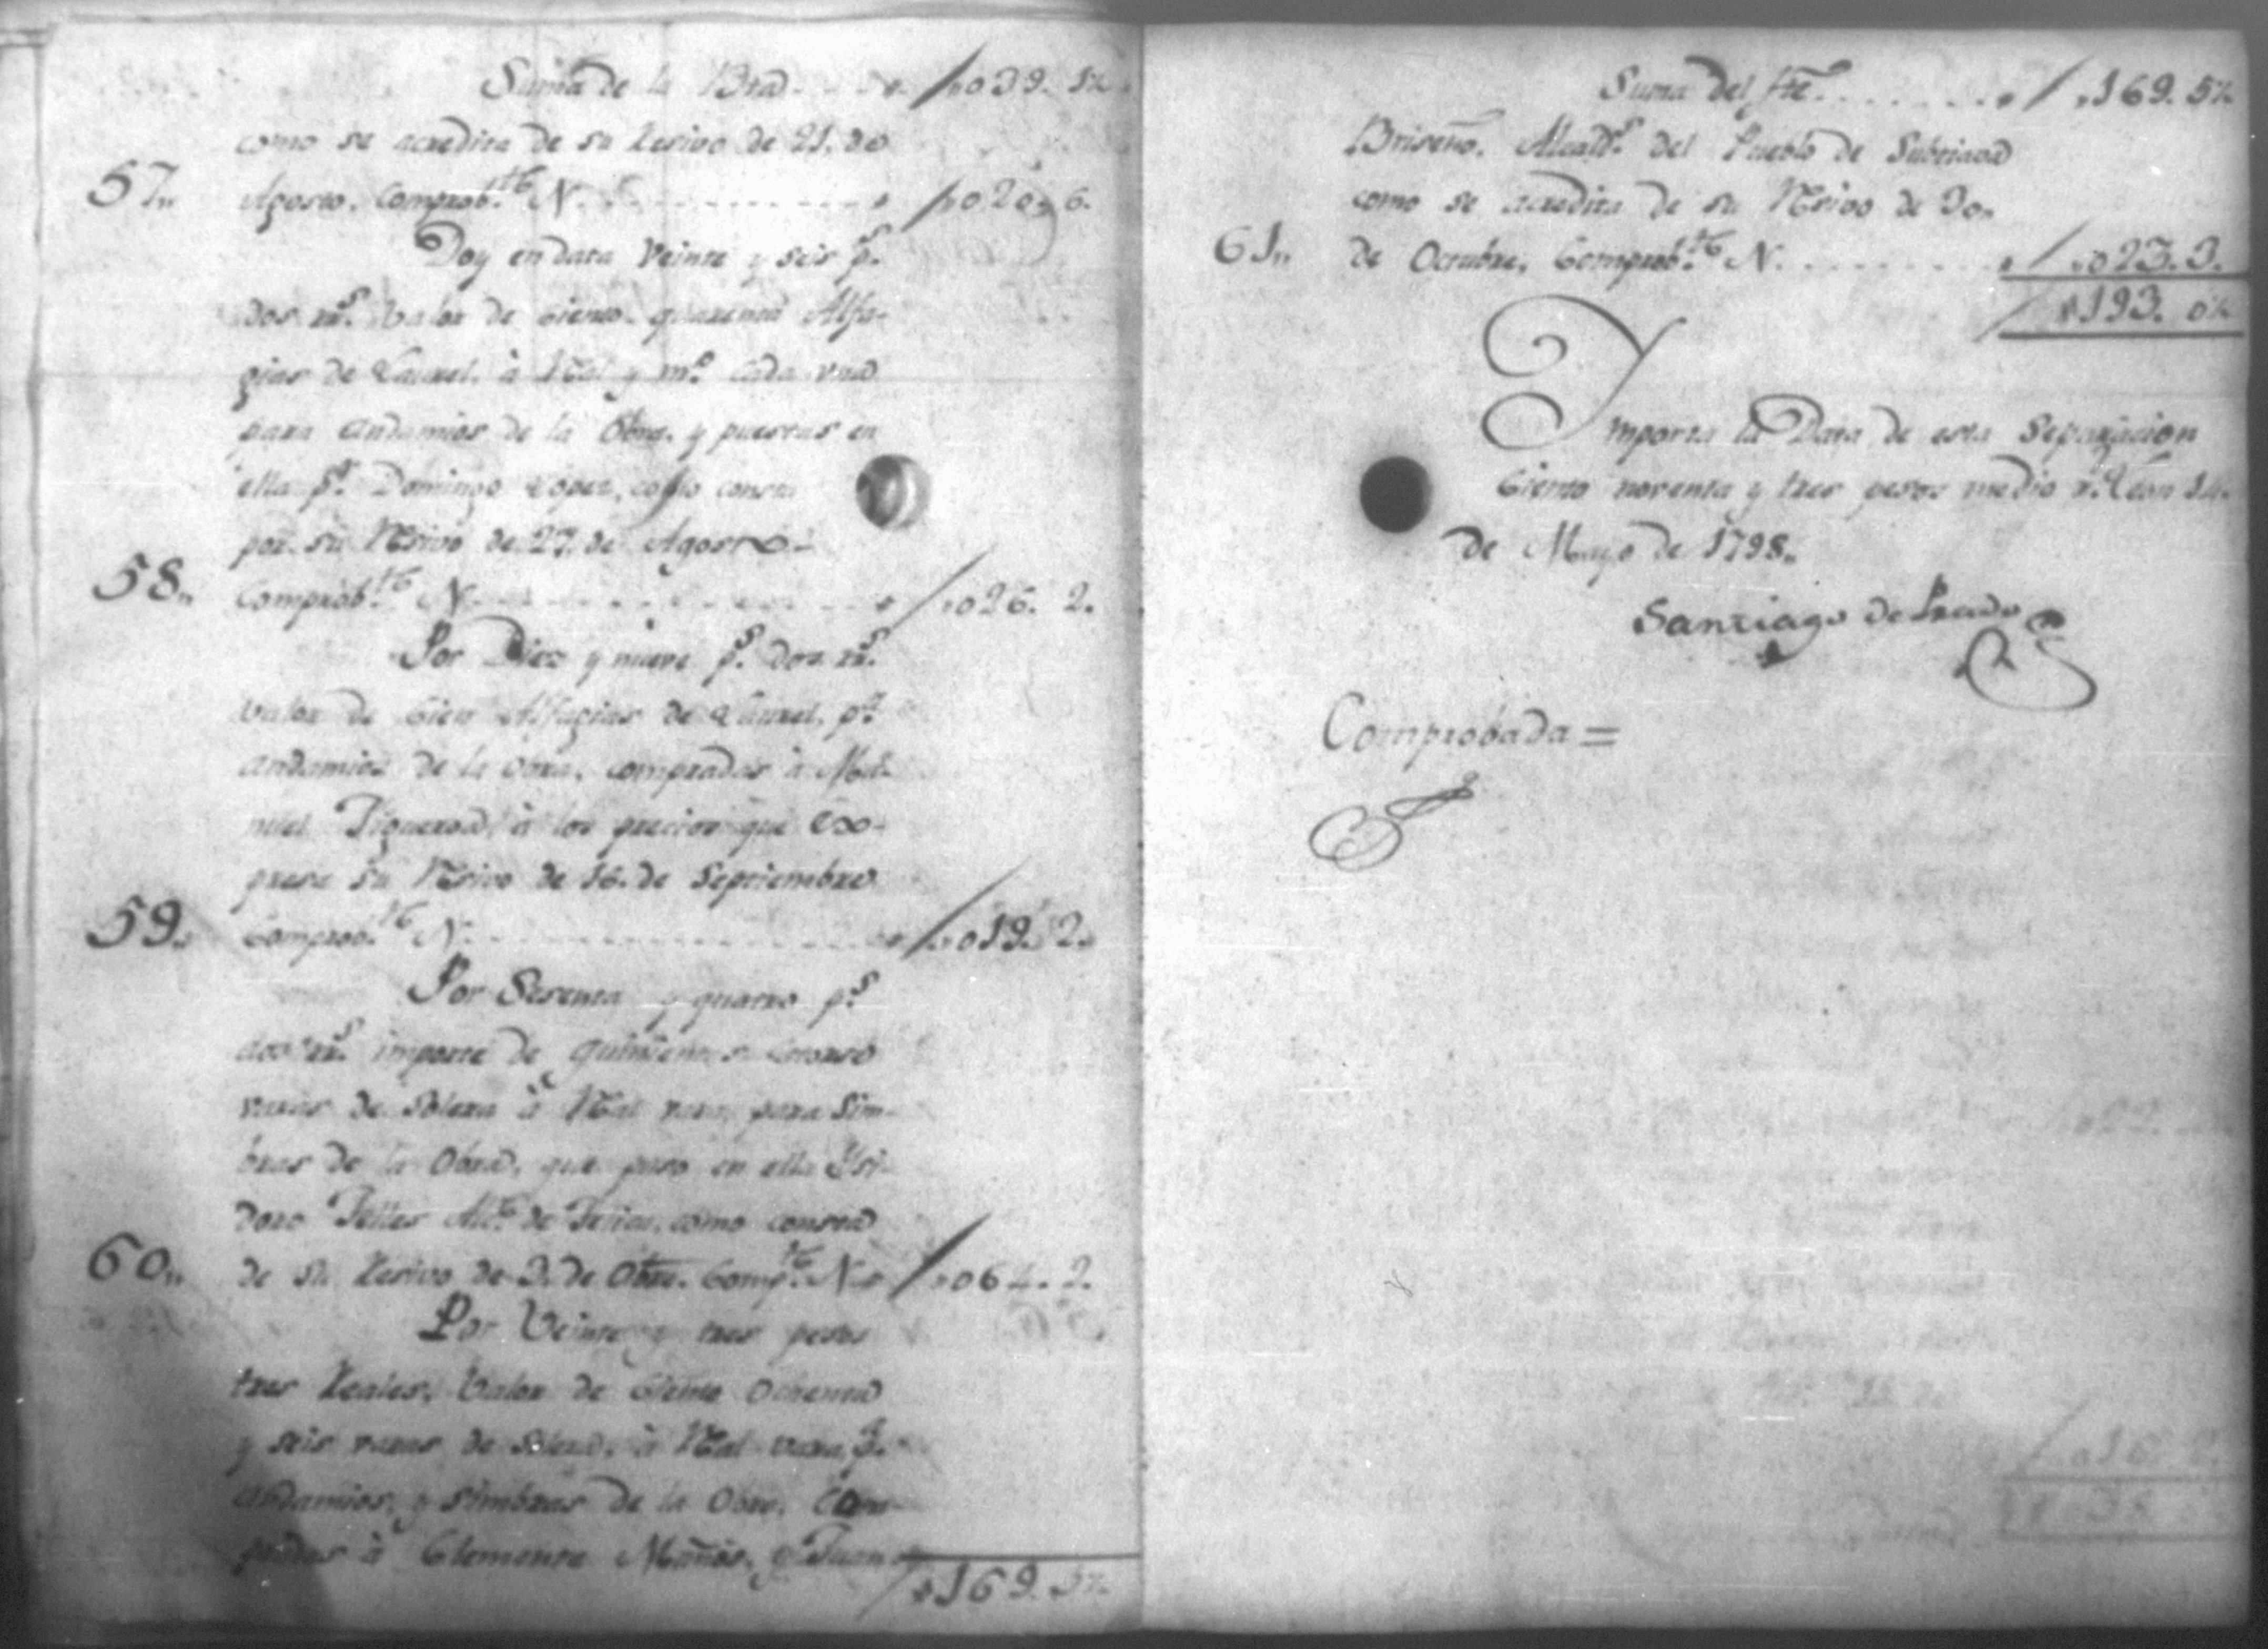 Suma de la Bta. . . . „039. 1½
como se acredita de su Resivo de 21. de
57„ Agosto. Comprob.te N. . . . . . „020„ 6.
Doy en data Veinte y seis p.s
dos rr.s valor de ciento quarenta Alfa-
gias de Laurel. à Real y m.o cada una
para andamios de la Obra. y puestas en
ella p.r Domingo Lopez, como consta
por su Resivo de 27. de Agosto-
58„ Comprob.te N. . . . . . „026. 2.
Por Diez y nueve p.s dos rr.s
valor de Cien Alfagias de Laurel, p.a
andamios de la Obra, compradas à Ma-
nuel Figueroa, à los precios que Ex-
presa su Resivo de 16. de Septiembre
59„ Comprob.te N. . . . . . „019. 2.
Por Sesenta y quatro p.s
dos rr.s importe de quinientas Catorse
varas de Solera à Real vara, para Sim-
bras de la Obra, que puso en ella Ysi-
doro Telles Alc.e de Telica, como consta
60„ de su Resivo de 3. de Obre. Comp.te N. „064. 2.
Por Veinte y tres pesos
tres Reales, Valor de Ciento Ochenta
y seis varas de Solera, à Real vara, p.a
andamios, y Simbras de la Obra, Com-
pradas à Clemente Muñós, y Juan
„169. 5½
Suma del fte. . . . . „169. 5½
Briseño. Alcald.s del Pueblo de Subtiava
como se acredita de su Resivo de 30„
61„ de Octubre, Comprob.te N. . . . . „023. 3.
„193. 0½
Ymporta la Data de esta Separacion
Ciento noventa y tres pesos medio r.l Leon 14.
de Mayo de 1798„
Santiago de Prado
Comprobada =